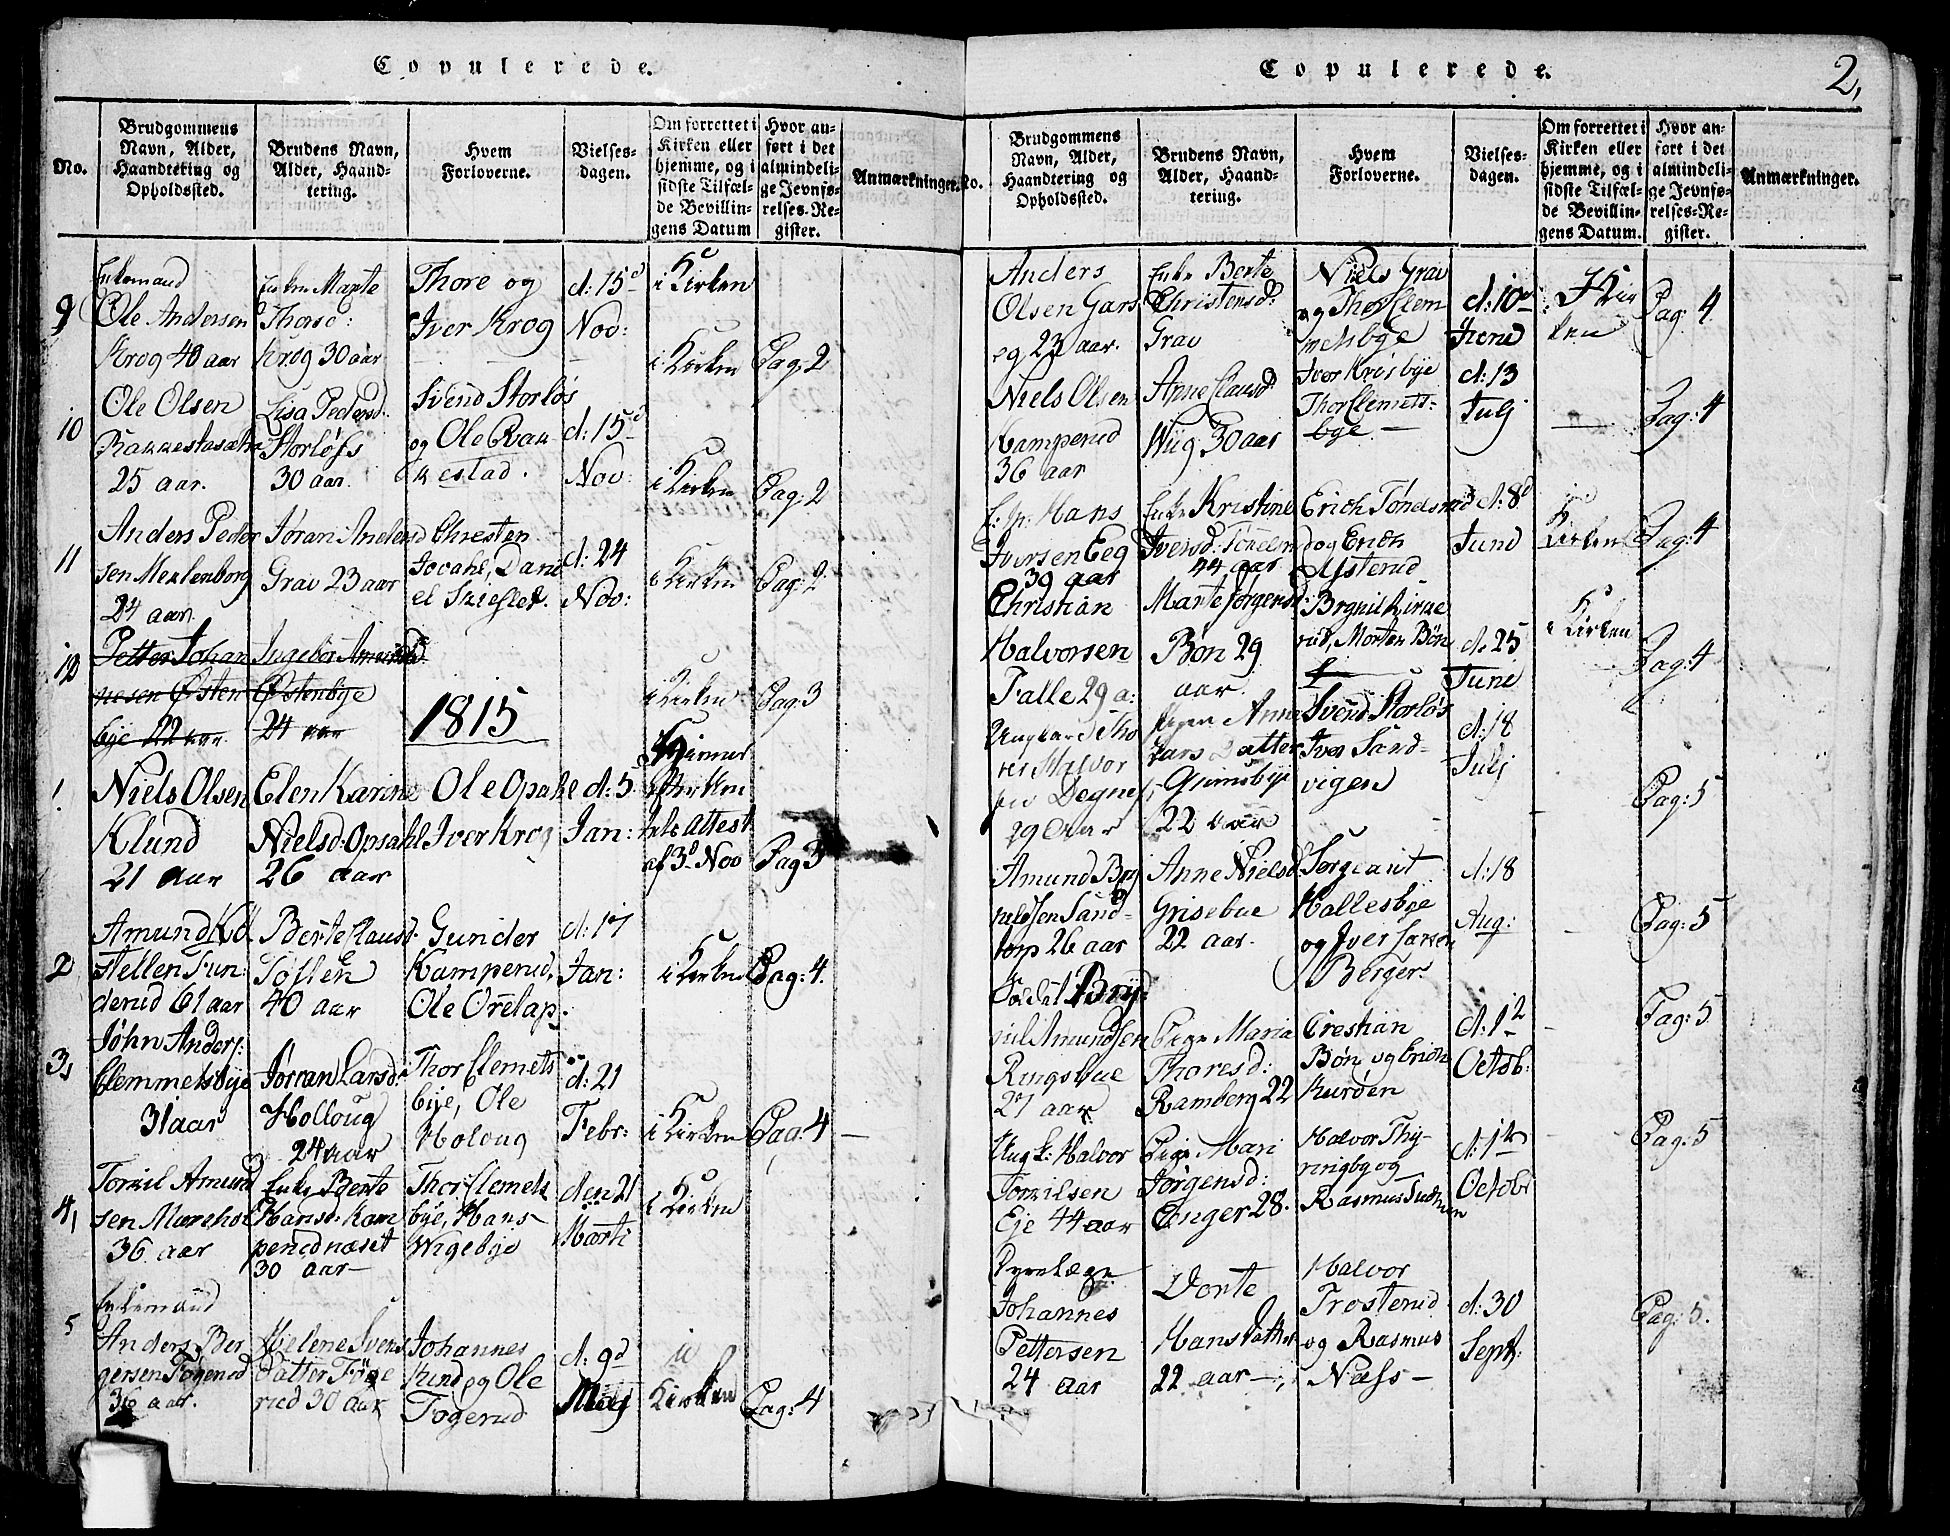 Copulerede.
No.
Brudgommens
Navn, Alder,
Haandtering og
Opholdssted.
Brudens Navn,
Alder, Haand-
tering.
Hvem
Forloverne.
Vielses-
dagen.
Om forrettet i
Kirken eller
hjemme, og i
sidste Tilfæl-
de Bevillin-
gens Datum
Hvor an-
ført i det
almindeli-
ge Jevnfø-
relses-Re-
gister.
Anmærkninger.
9
Enkemand
Ole Andersen
Krog 40 aar
Enken Marte
Thorsd:
Krog 30 aar
Thore og
Iver Krog
d: 15d
Nov:
i Kirken
10
Ole Olsen
25 aar.
Lisa Pedersd.
Storløss
30 aar.
Svend Storløs
og Ole Rak
kestad.
d: 15d
Nov:
i Kirken
Pag: 2
11
Anders Peder
sen Meklenborg
24 aar.
Jøran Andersd
Grav 23 aar
Chresten
Dani
el
d: 24
Nov:
i Kirken
Pag: 2
12
Petter Johan
nesen Østen
bye 22 aar.
Ingebor Amundsd
Østenbye
24 aar
i Kirken
Pag: 2
1815
i Kirken
Pag: 3
1.
Niels Olsen
Klund
21 aar
Elen Karine
Nielsd: Opsahl
26 aar
Ole Opsahl
Iver Krog
d: 5
Jan:
Attest
af 3d Nov
Pag 3
2
Amund
derud 61 aar
Berte Clausd.
40 aar
Gunder
Kamperud,
Ole
d: 17
Jan:
i Kirken
Pag: 4.
3,
John Anders:
Clemmetsbye
31 aar
Jørran Larsd:
Holloug
24 aar
Thor Clemets
bye, Ole
Holoug
d: 21
Febr:
i Kirken
Pag: 4
4,
Torkil Amund
sen
36 aar
Enke Berte
Hansd: Kam
perudnæset
30 aar
Thor Clemets
bye, Hans
Wigebye
den 21
Marti
i Kirken
5
Enkemand
Anders Ber
gersen Fogerud
36 aar.
Helene Svens
datter
rud 30 aar
Johannes
og Ole
Fogerud
d: 9d
Maij
i
Kirken
Pag: 4
Copulerede.
2,
No.
Brudgommens
Navn, Alder,
Haandtering og
Opholdssted.
Brudens Navn,
Alder, Haand-
tering.
Hvem
Forloverne.
Vielses-
dagen.
Om forrettet i
Kirken eller
hjemme, og i
sidste Tilfæl-
de Bevillin-
gens Datum.
Hvor an-
ført i det
almindeli-
ge Jevnfø-
relses-Re-
gister.
Anmærkninger.
Anders
Olsen Gars
eg 23 aar.
Enke Berte
Christensd:
Grav
Niels Grav
og Thor Clem
metsbye
d: 10d
Juni
i Kir
ken
Pag: 4
Niels Olsen
Kamperud
36 aar
Anne Clausd
Wiig 30 aar
Iver Krisbye
Thor Clemets-
bye.
d: 13
Julj
Pag: 4
Hans
Iversen Eeg
39 aar
Enke Kristine
Iversd:
44 aar
Erich
og Erich
Ysterud
d: 8d
Juni
i
Kirken
Pag: 4
Christian
Halvorsen
Falle 29 a:
Marte Jørgensd:
Bøn 29
aar.
Morten Bøn
d: 25
Juni
i Kirken
Pag: 4
Ungkarl Tho
res Halvor
sen
29 aar
Pigen Anne
Lars Datter
Grimsbye
22 aar
Svend Storløs
Iver Sand-
vigen
d: 18
Julj
Pag: 5
Amund Bry
nildsen Sand-
torp 26 aar
Anne Nielsd
Grisebue
22 aar.
Sergeant
Hallesbye
og Iver
Berger.
d: 18
Aug:
Pag: 5
Soldat Bryn
jul Amundsen
Ringsbue
27 aar
Pige Maria
Thoresd:
Ramberg 22
Crestian
Bøn og Erich
d: 12
Octob:
Pag: 5
Ungk: Halvor
Torkilsen
Eje 44 aar
Pige Mari
Jørgensd:
Enger 28.
Halvor Thy-
ringbyog
Rasmus
Octobr
Pag: 5
Johannes
Pettersen
24 aar
Dorte
Hans Datter
22 aar
Halvor
Trosterud
og Rasmus
Næss
d: 30
Septb:
Pag: 5.